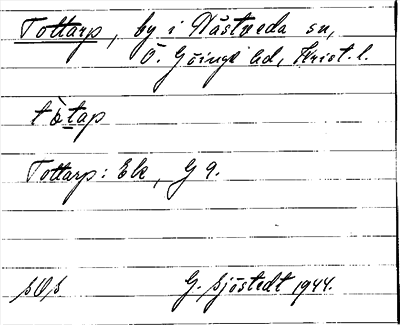 Tottarp, by i Nästveda sn,
Ö. Göinge hd, Krist. l.
tòtap
Tottarp: Ek, G 9.
SOS G. Sjöstedt 1944.